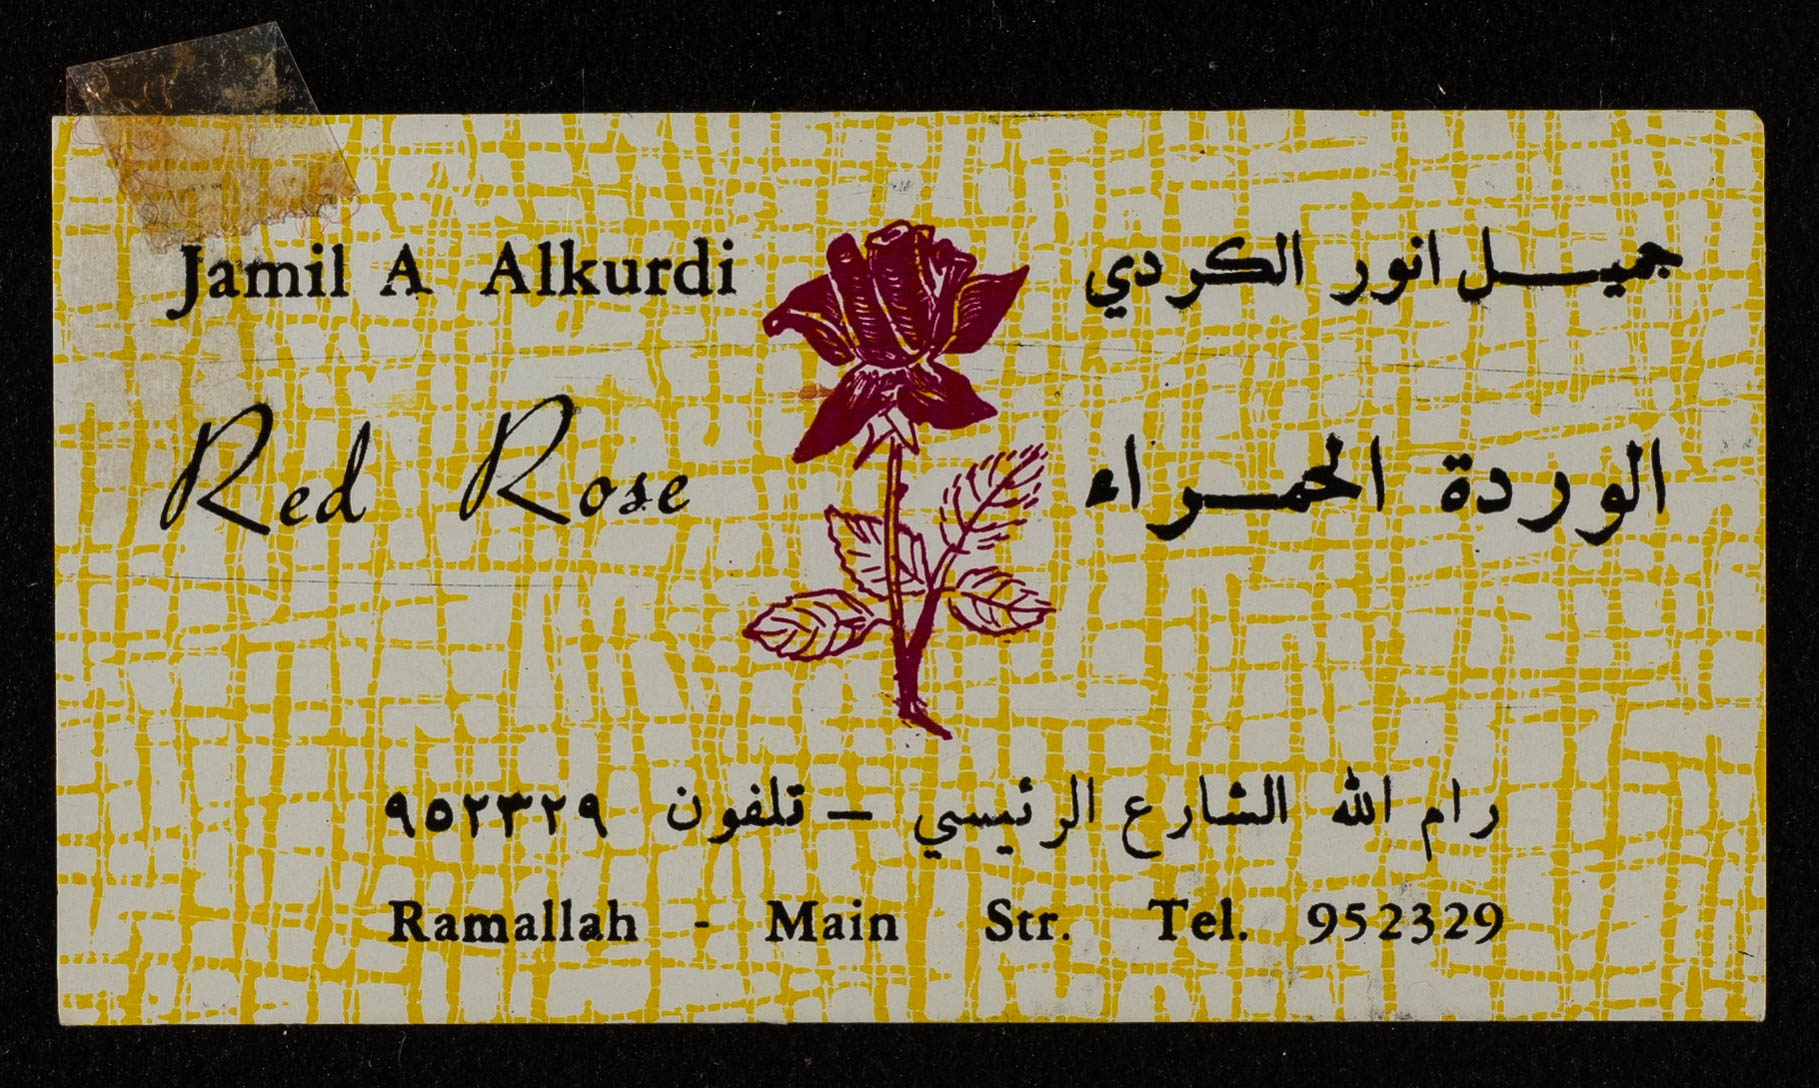 Jamil A Alkurdi
جميل انور الكردي
Red Rose
الوردة الحمراء
رام الله الشارع الرئيسي – تلفون ٩٥٢٣٢٩
Ramallah - Main Str. Tel. 952329